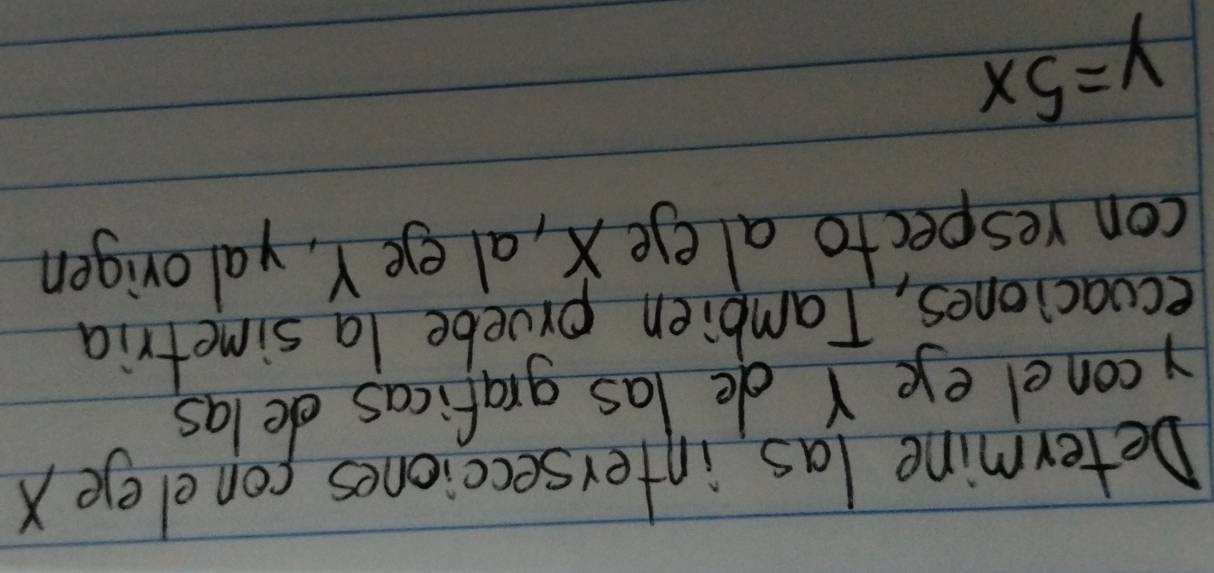 Determine las intersecciones con el eje X
y con el eje Y de las graficas de las
ecuaciones, Tambien pruebe la simetria
con respecto al eje X, al eje Y, y al origen
y=5x